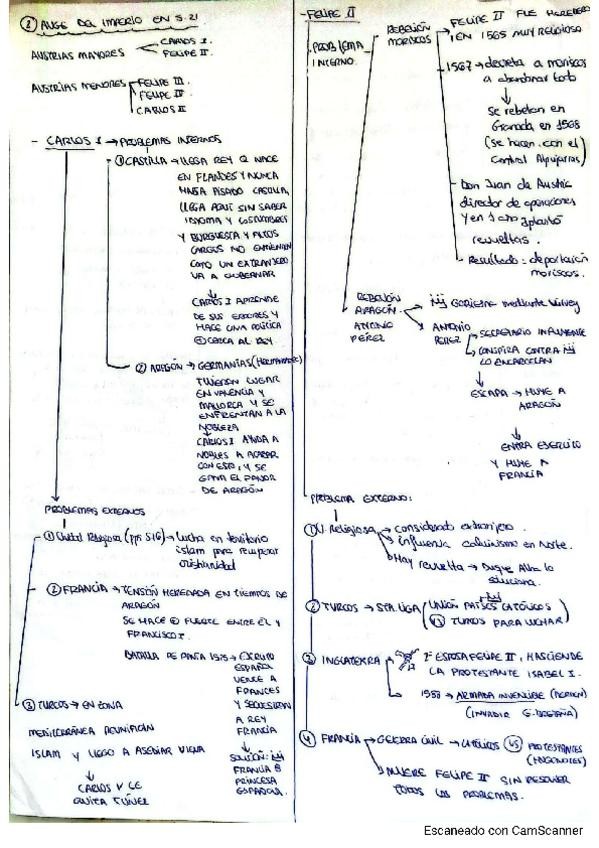 ② AUGE DEL IMPERIO EN S.21
AUSTRIAS MAYORES
CARLOS I.
FELIPE II.
AUSTRIAS MENORES
FELIPE III
FELIPE IV
CARLOS II
- CARLOS I → PROBLEMAS INTERNOS
① CASTILLA → LLEGA REY Q NACE
EN FLANDES Y NUNCA
HABÍA PISADO CASTILLA,
LLEGA AQUÍ SIN SABER
IDIOMA Y COSTUMBRES
Y BURGUESÍA Y ALTOS
CARGOS NO ENTIENDEN
COMO UN EXTRANJERO
VA A GOBERNAR
CARLOS I APRENDE
DE SUS ERRORES Y
HACE UNA POLÍTICA
⊕ CERCA AL REY.
② ARAGÓN → GERMANÍAS
TUVIERON LUGAR
EN VALENCIA Y
MALLORCA Y SE
ENFRENTAN A LA
NOBLEZA
CARLOS I AYUDA A
NOBLES A ACABAR
CON ESTO, Y SE
GANA EL FAVOR
DE ARAGÓN
PROBLEMAS EXTERNOS
① Unidad Religiosa (pps S16) → Lucha en territorio
islam para recuperar
cristiandad
② FRANCIA → TENSIÓN HEREDADA EN TIEMPOS DE
ARAGÓN
SE HACE ⊕ FUERTE ENTRE ÉL Y
FRANCISCO I.
BATALLA DE PAVÍA 1525 → EJÉRCITO
ESPAÑOL
VENCE A
FRANCÉS
Y SECUESTRAN
A REY
FRANCIA
SOLUCIÓN:
FRANCIA &
PRINCESA
ESPAÑOLA.
③ TURCOS → EN ZONA
MEDITERRÁNEA REUNIFICAN
ISLAM Y LLEGÓ A ASEDIAR VIENA
CARLOS V LE
QUITA TÚNEZ
- FELIPE II
PROBLEMA
INTERNO.
REBELIÓN
MORISCOS
FELIPE II FUE HEREDERO
EN 1565 MUY RELIGIOSO
1567 → decreta a moriscos
a abandonar todo
Se rebelan en
Granada en 1568
(se hacen con el
control Alpujarras)
- Don Juan de Austria
director de operaciones
y en 1 año aplastó
revueltas.
- Resultado: deportación
moriscos.
REBELIÓN
ARAGÓN
ANTONIO
PÉREZ
GOBIERNE mediante Virrey
ANTONIO
PÉREZ
SECRETARIO INFLUYENTE
CONSPIRA CONTRA
LO ENCARCELAN
ESCAPA → HUYE A
ARAGÓN
ENTRA EJÉRCITO
Y HUYE A
FRANCIA
PROBLEMA EXTERNO:
① U. Religiosa → considerado extranjero.
influencia calvinismo en Norte.
Hay revuelta → Duque Alba lo
soluciona.
② TURCOS → STA. LIGA (UNIÓN PAÍSES CATÓLICOS
VS TURCOS PARA LUCHAR)
③ INGLATERRA
2ª ESPOSA FELIPE II, ASCIENDE
LA PROTESTANTE ISABEL I.
1588 → ARMADA INVENCIBLE (PIERDEN)
(INVADIR G. BRETAÑA)
④ FRANCIA → GUERRA CIVIL → CATÓLICOS VS PROTESTANTES
(HUGONOTES)
MUERE FELIPE II SIN RESOLVER
TODOS LOS PROBLEMAS.
Escaneado con CamScanner